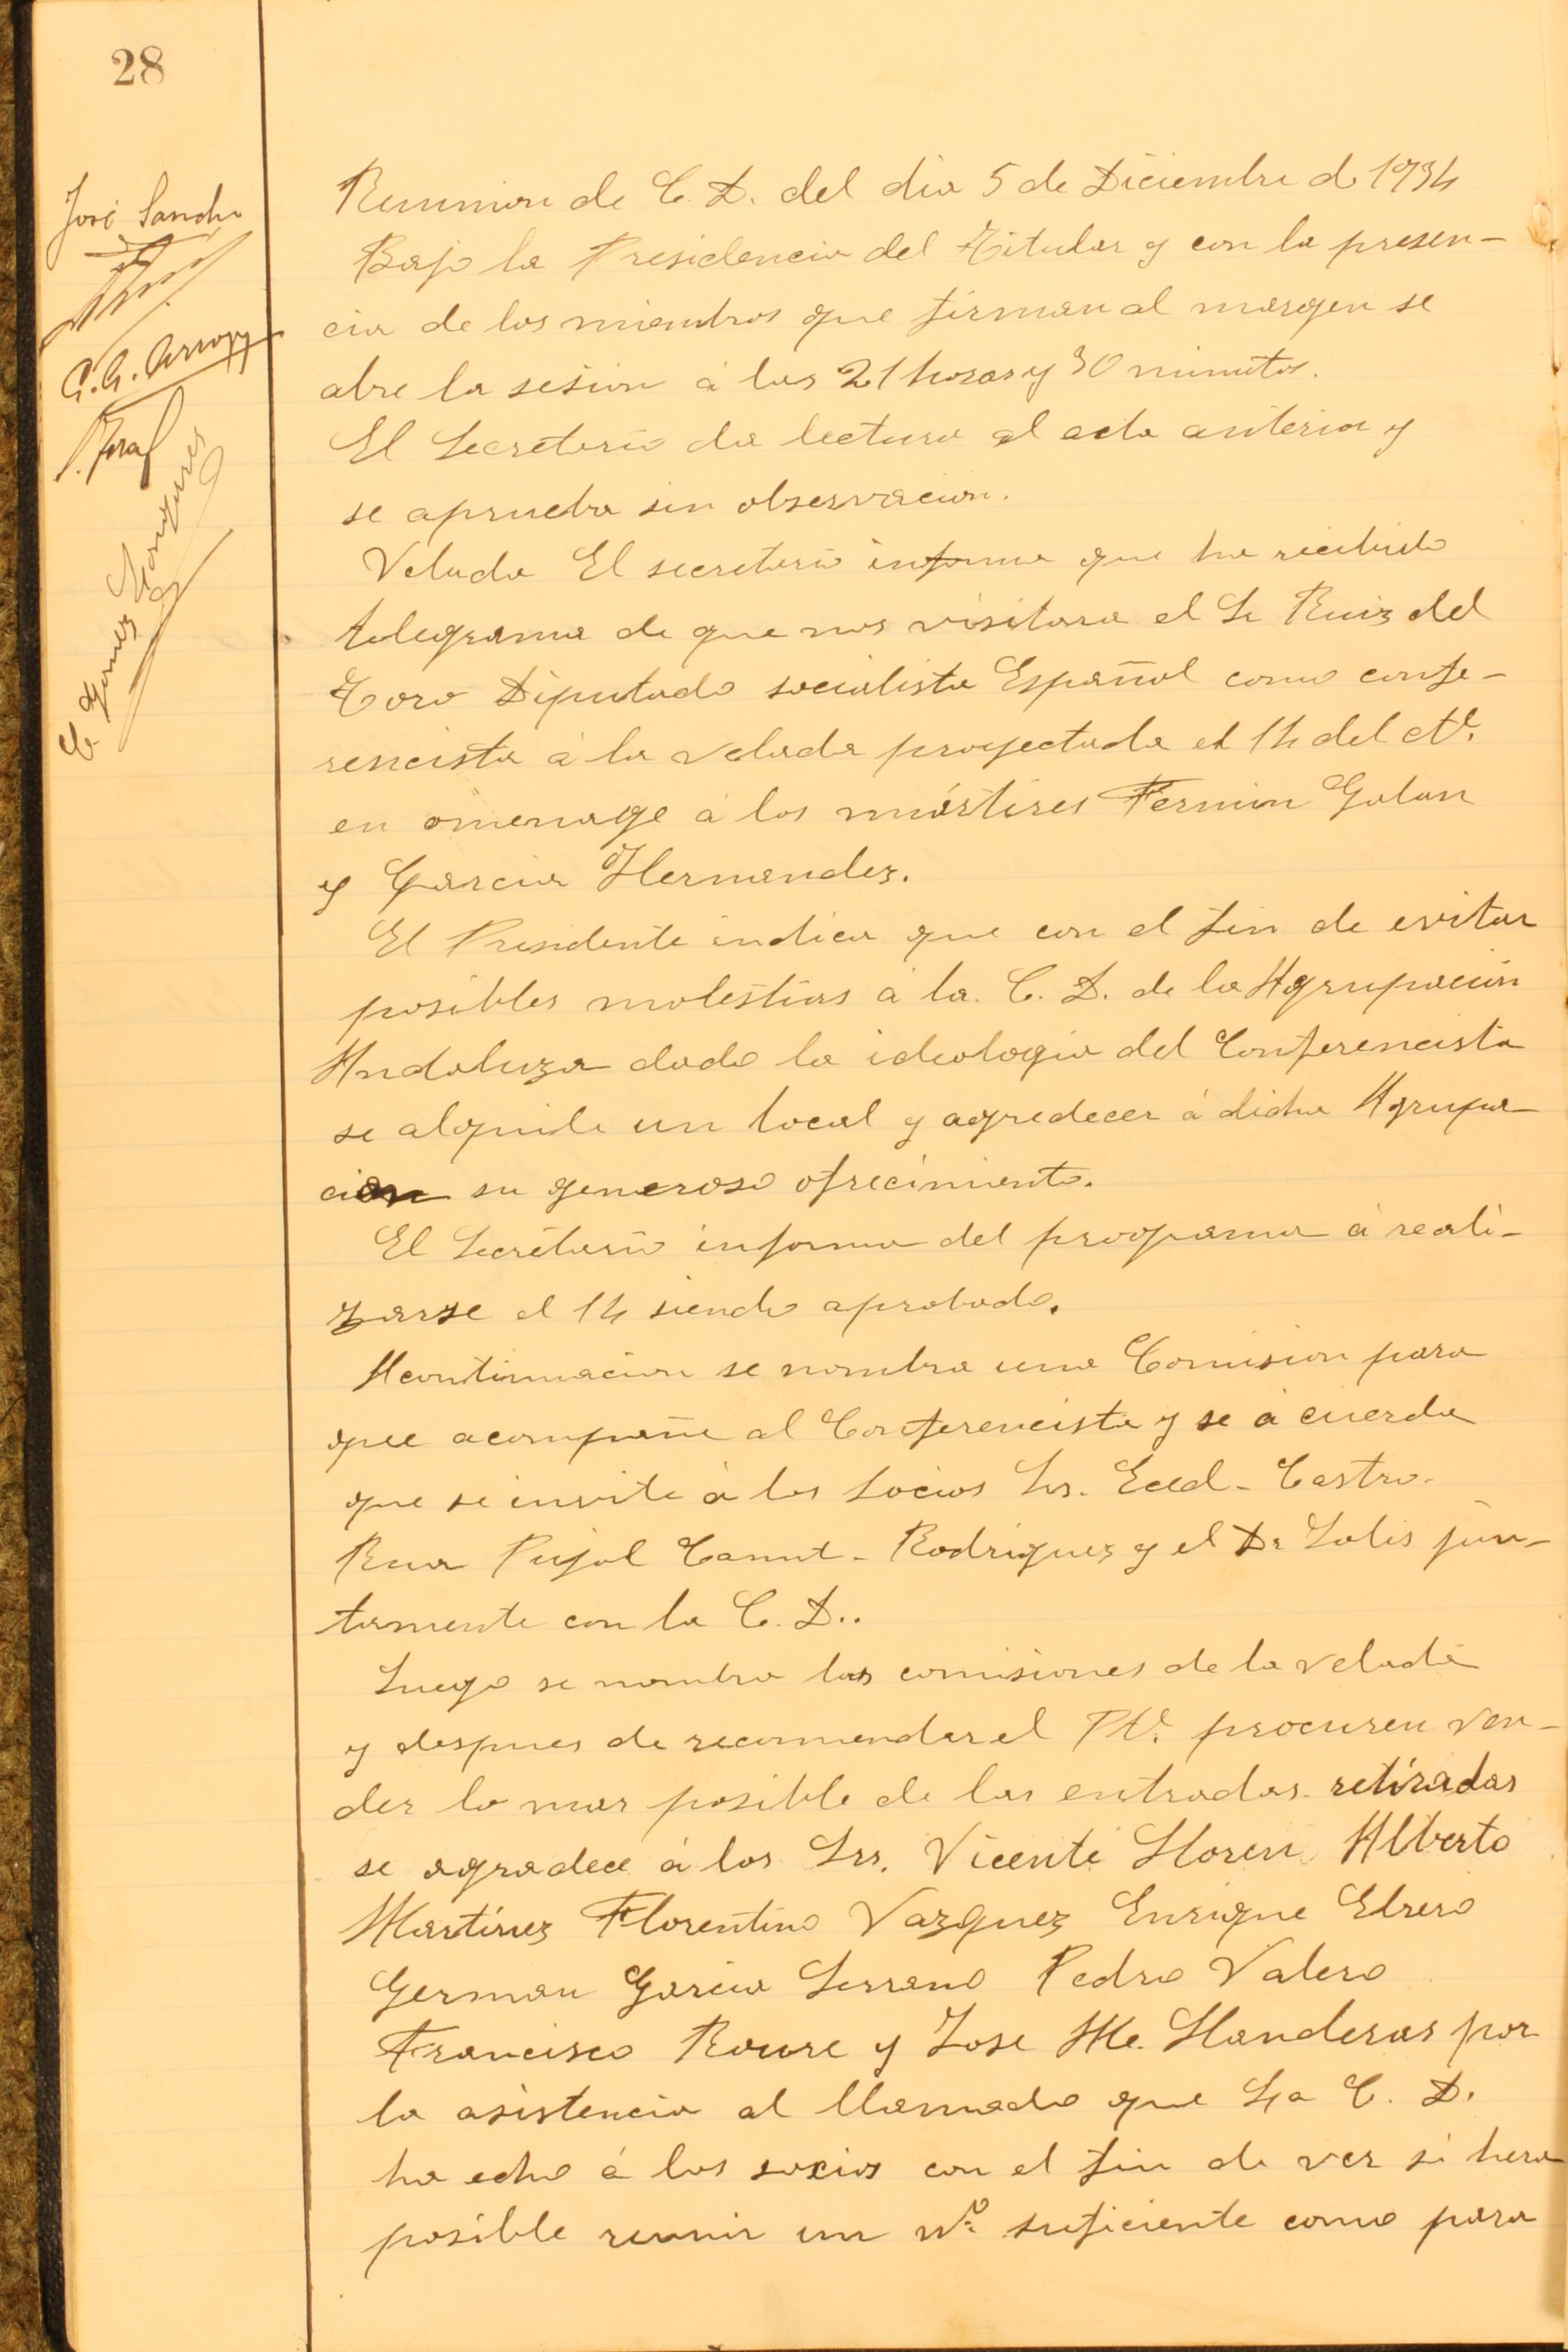 28
José Sancho
G. G. Arroyo
Reunnion de C. D. del dia 5 de Diciembre de 1934
Bajo la Presidencia del Titular y con la presen-
cia de los miembros que firman al margen se
abre la sesion á las 21 horas y 30 minutos.
El Secretario da lectura al acta anterior y
se aprueba sin observacion.
Velada El secretario informa que ha recibido
telegrama de que nos visitara el Sr Ruiz del
Toro Diputado socialista Español como confe-
rencista á la velada proyectada el 14 del ct.
en omenage á los mártires Fermin Galan
y Garcia Hernandez.
El Presidente indica que con el fin de evitar
posibles molestias á la C. D. de la Agrupacion
Andaluza dado la ideologia del Conferencista
se alquile un local y agredecer á dicha Agrupa
cion su generoso ofrecimiento.
El Secretario informa del programa á reali-
zarse el 14 siendo aprobado.
Acontinuacion se nombra una Comision para
que acompañe al Conferencista y se á cuerda
que se invite á los Socios Srs. Castro.
Rua Pujol Canut - Rodriguez y el Dr Solis jun-
tamente con la C. D..
Luego se nombra las comisiones de la velada
y despues de recomendar el Pte. procuren ven-
der lo mas posible de las entradas retiradas
se agradece á los Srs. Vicente Lloren Alberto
Martinez Florentino Vazquez Enrique
German Garcia Serrano Pedro Valero
Francisco Roure y Jose Ma. Llanderas por
la asistencia al llamado que La C. D.
ha echo á los socios con el fin de ver si hera
posible reunir un Nº suficiente como para